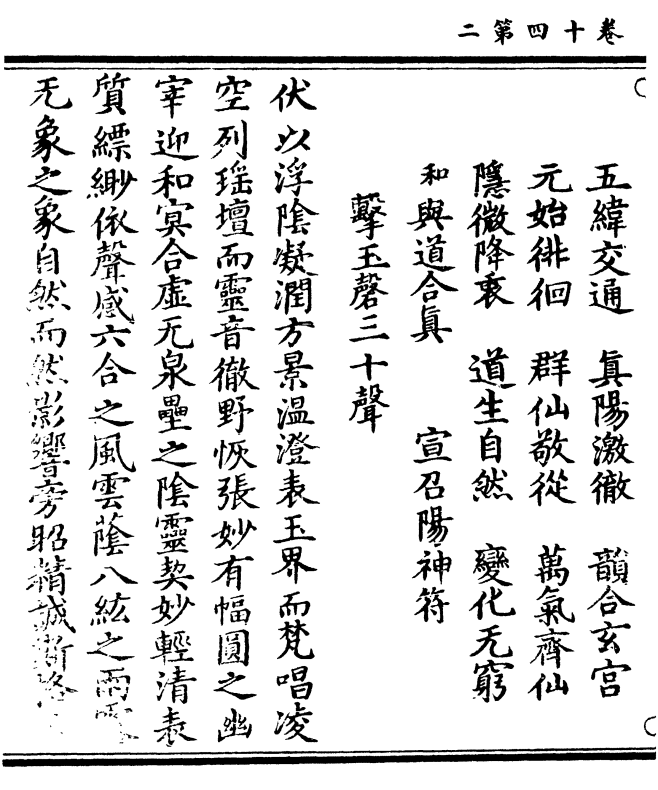 卷十四第二
五緯交通　真陽激徹　韻合玄宮
元始徘徊　群仙敬從　萬氣齊仙
隱微降衷　道生自然　變化无窮
和與道合真　宣召陽神符
擊玉磬三十聲
伏以浮陰凝潤方景溫澄表玉界而梵唱凌
空列瑤壇而靈音徹野恢張妙有幅圓之幽
宰迎和冥合虛无泉壘之陰靈契妙輕清表
質縹緲依聲感六合之風雲蔭八紘之雨
无象之象自然而然影響旁昭精誠